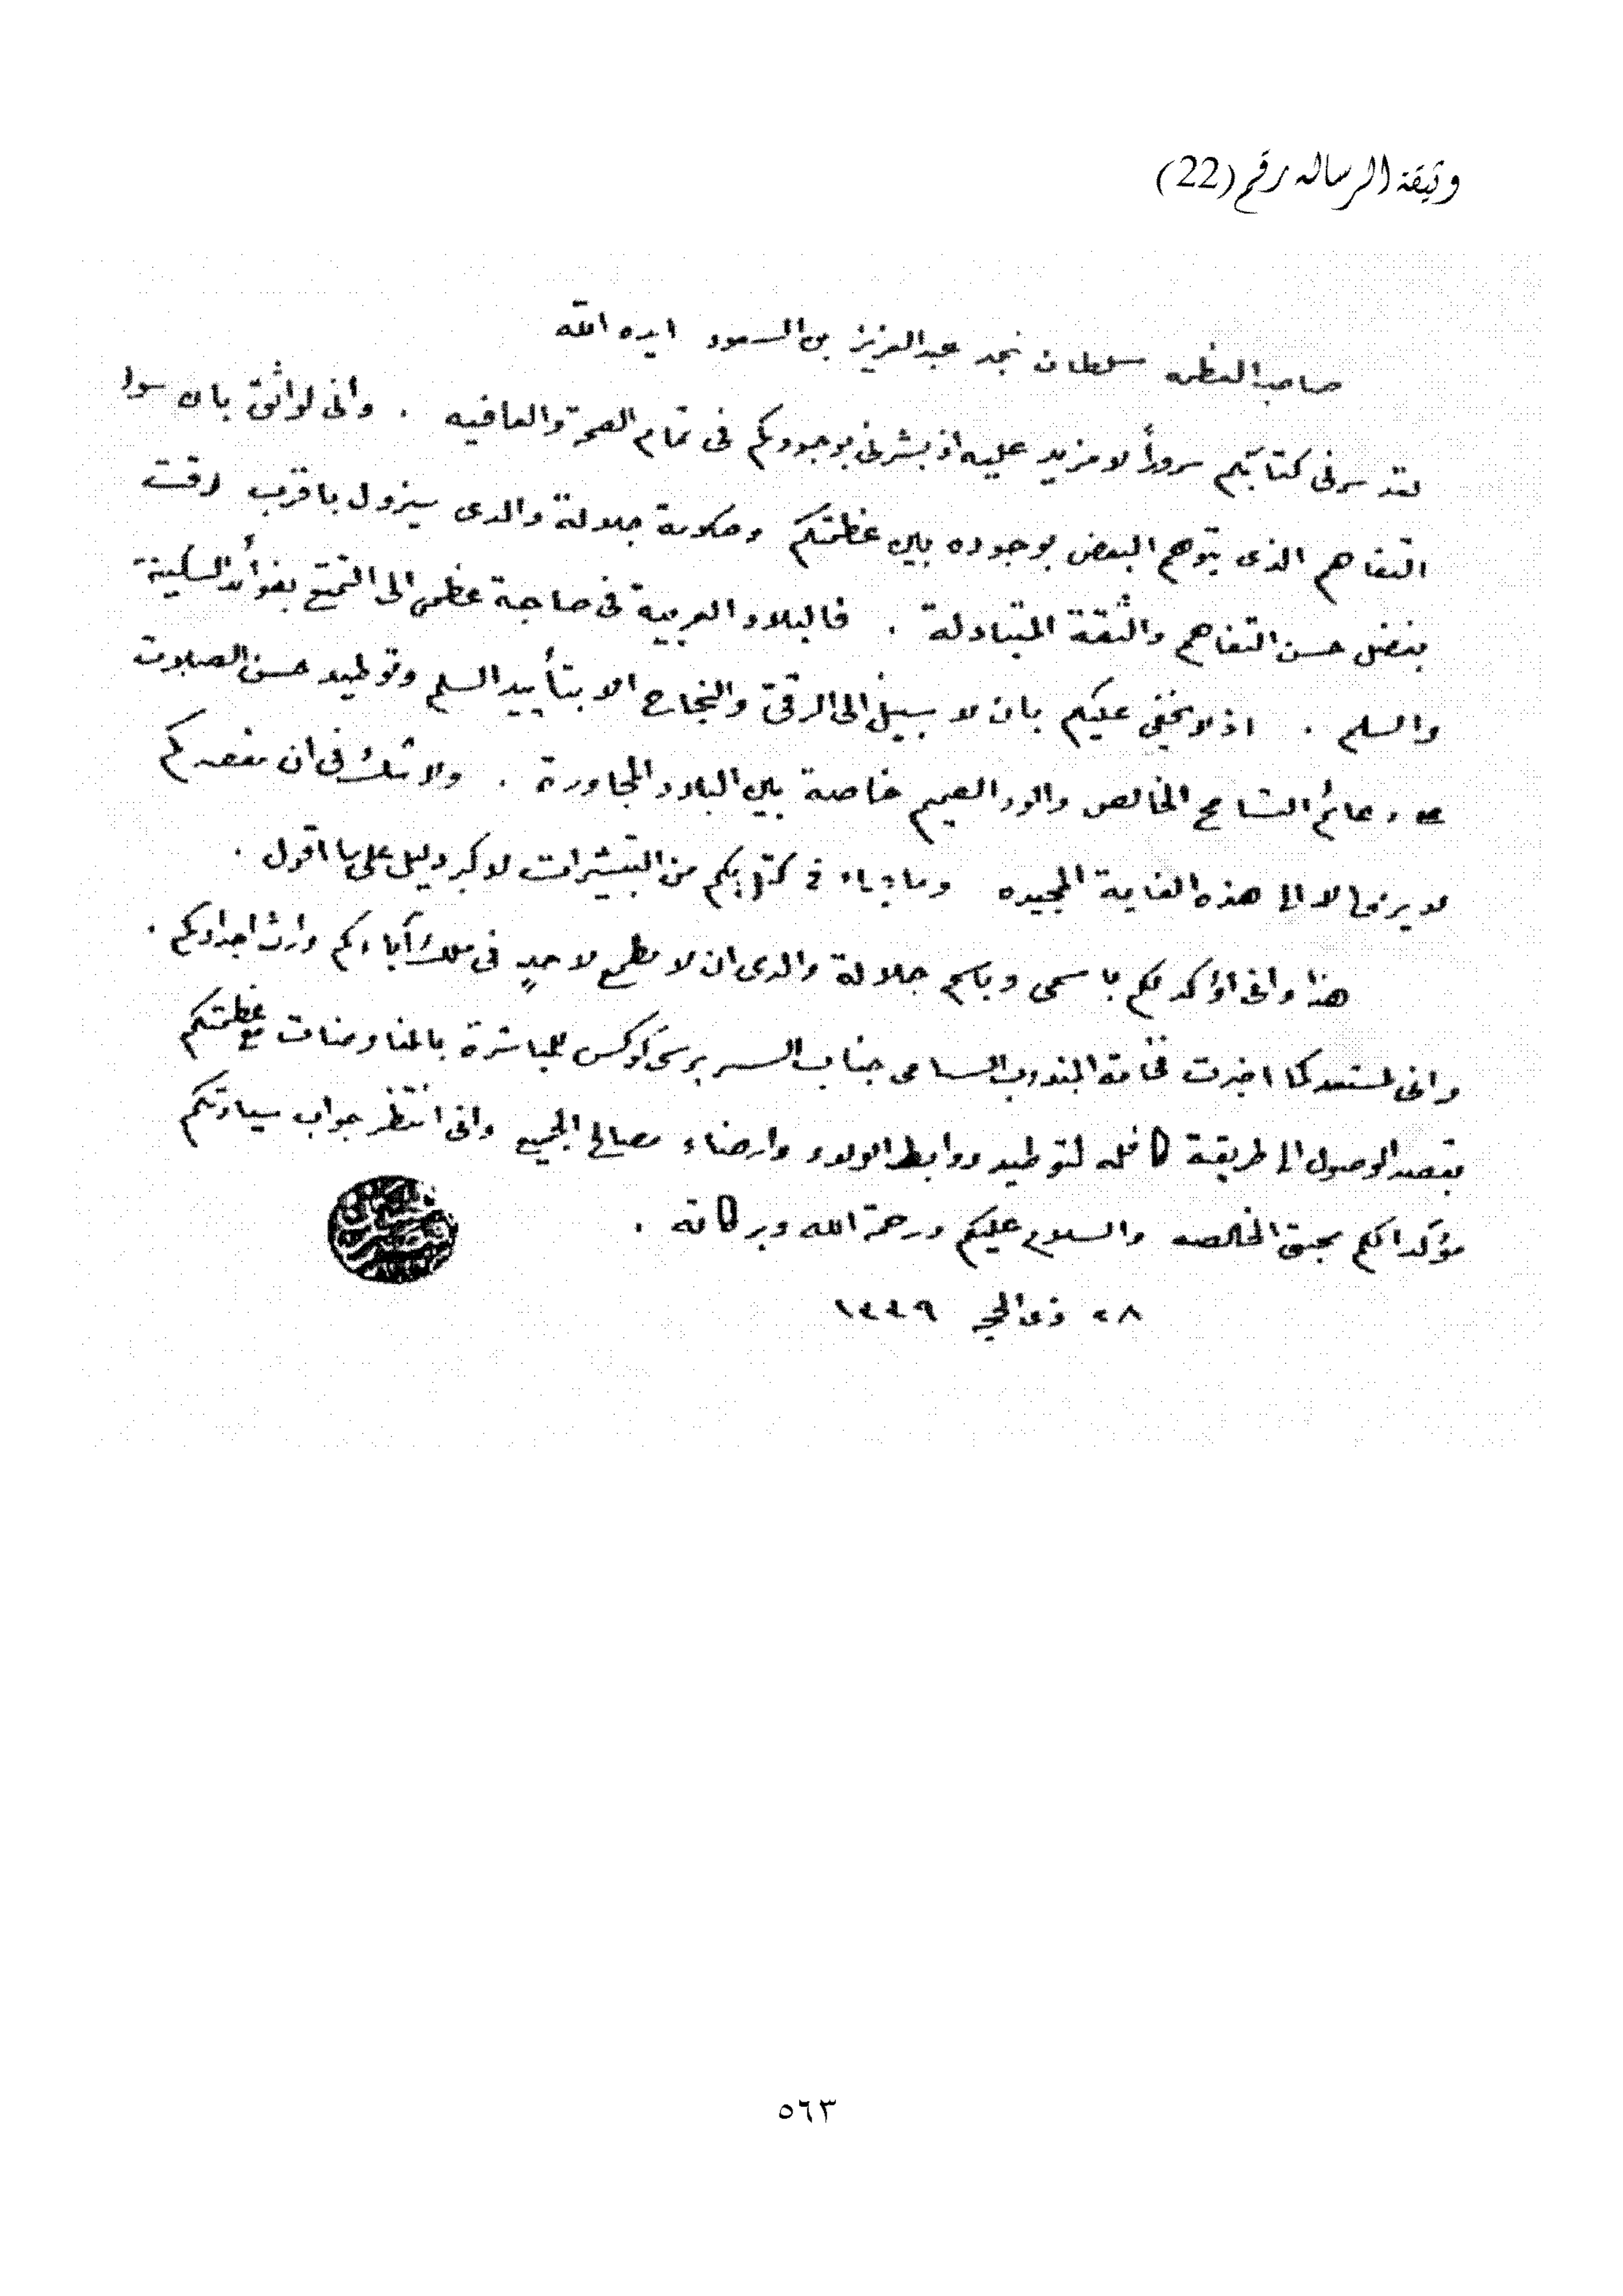 وثيقة الرساله رقم (22)
صاحب العظمه سلطان نجد عبدالعزيز بن السعود ايده الله
لقد سرنى كتابكم سروراً لا مزيد عليه اذ بشرنى بوجودكم فى تمام الصحة والعافيه . وانى لواثق بان سوء
التفاهم الذى يتوهم البعض بوجوده بين عظمتكم وحكومة جلالة والدى سيزول باقرب وقت
بفضل حسن التفاهم والثقة المتبادلة . فالبلاد العربية فى حاجة عظمى الى التمتع بفوائد السكينة
والسلم . اذ لا يخفى عليكم بان لا سبيل الى الرقى والنجاح الا بتأييد السلم وتوطيد حسن الصلات
دعائم التسامح الخالص والود الصميم خاصة بين البلاد المجاورة . ولا شك فى ان مقصدكم
لا يرمى الا الى هذه الغاية المجيده وما جاء فى كتابكم من التبشيرات لاكبر دليل على ما اقول .
هذا وانى اؤكد لكم باسمى وباسم جلالة والدى ان لا مطمع لاحدٍ فى ملك آباءكم وارث اجدادكم .
وانى لمستعد كما اخبرت فخامة المندوب السامى جناب السر برسى كوكس للمباشرة بالمفاوضات مع عظمتكم
بقصد الوصول الى طريقة كافله لتوطيد روابط الولاء وارضاء مصالح الجميع وانى انتظر جواب سيادتكم
مؤكدا لكم بحبى الخالصه والسلام عليكم ورحمة الله وبركاته .
٢٨ ذى الحجه ١٣٣٩
٥٦٣